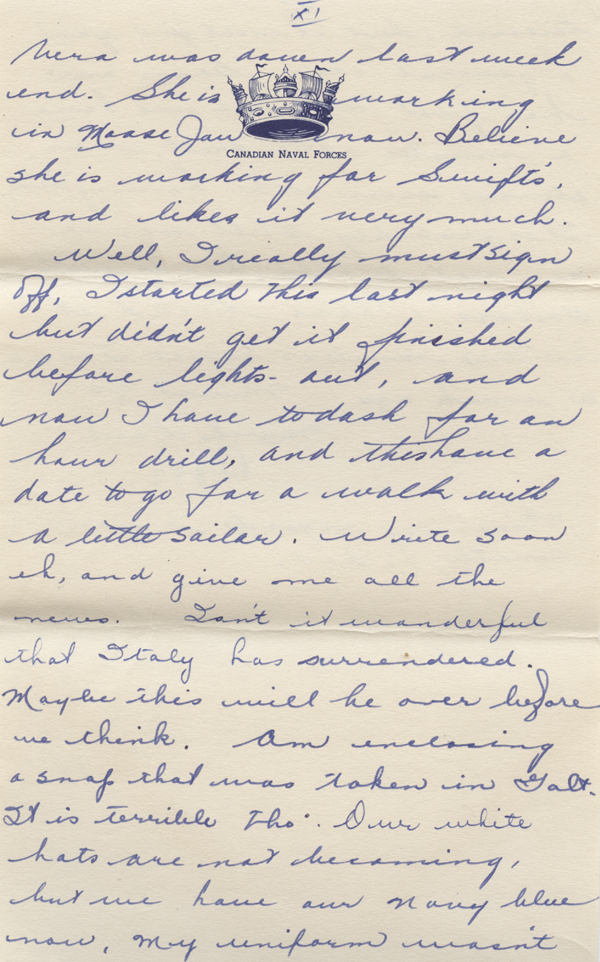 XI
Vera was down last week
end. She is working
in Moose Jaw now. Believe
CANADIAN NAVAL FORCES
she is working for Swift's,
and likes it very much.
Well, I really must sign
off, I started this last night
but didn't get it finished
before lights-out, and
now I have to dash for an
hour drill, and this have a
date to go for a walk with
a little sailor. Write soon
eh, and give me all the
news. Isn't it wonderful
that Italy has surrendered.
Maybe this will be over before
we think. Am enclosing
a snap that was taken in Galt.
It is terrible tho'. Our white
hats are not becoming,
but we have our Navy blue
now, my uniform wasn't